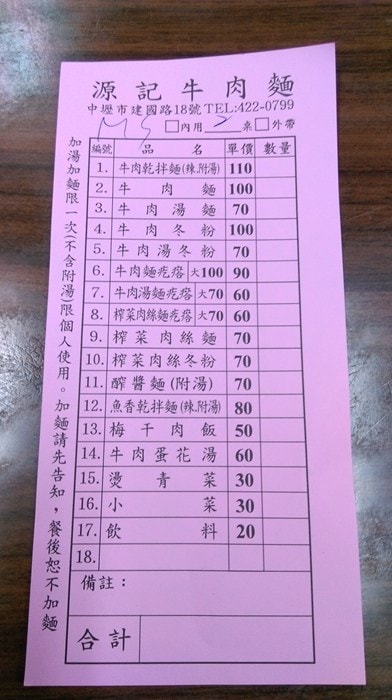 源記牛肉麵
中壢市建國路18號TEL:422-0799
□內用 桌□外帶
編號 品名 單價 數量
1. 牛肉乾拌麵(辣.附湯) 110
2. 牛肉麵 100
3. 牛肉湯麵 70
4. 牛肉冬粉 100
5. 牛肉湯冬粉 70
6. 牛肉麵疙瘩 大100 90
7. 牛肉湯麵疙瘩 大70 60
8. 榨菜肉絲麵疙瘩 大70 60
9. 榨菜肉絲麵 70
10. 榨菜肉絲冬粉 70
11. 醡醬麵(附湯) 70
12. 魚香乾拌麵(辣.附湯) 80
13. 梅干肉飯 50
14. 牛肉蛋花湯 60
15. 燙青菜 30
16. 小菜 30
17. 飲料 20
18.
備註：
合計
加湯加麵限一次(不含附湯)限個人使用。加麵請先告知，餐後恕不加麵